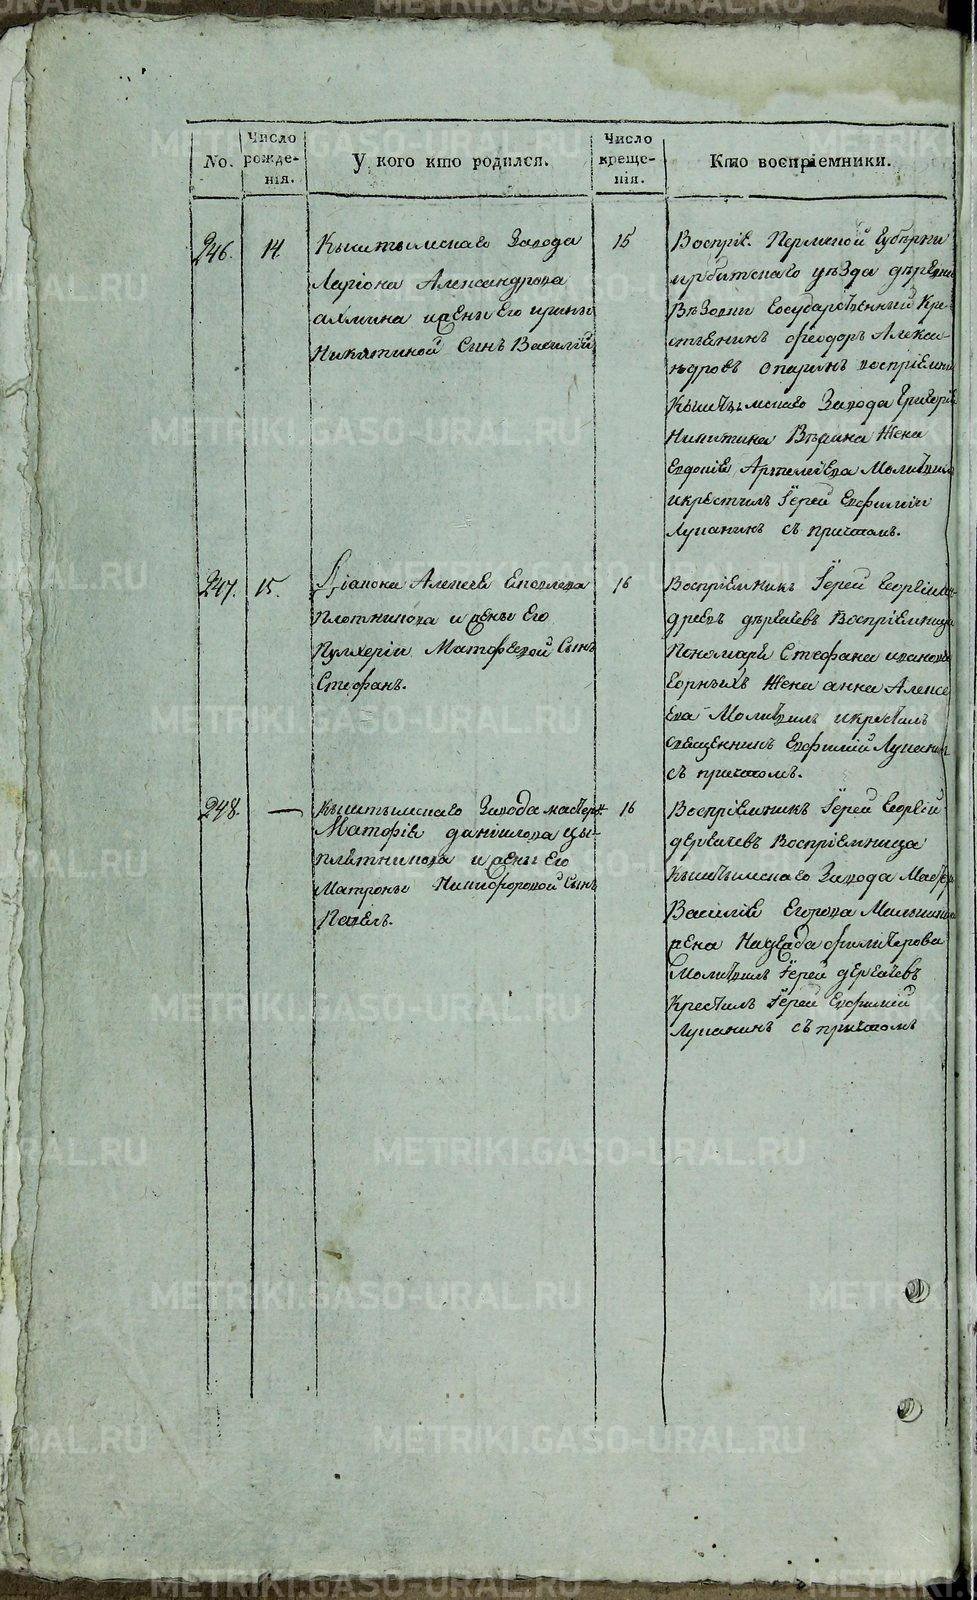 No.
Число рожде-нія.
У кого кто родился.
Число креще-нія.
Кто воспріемники.
246.
14
Кыштымскаго Завода
Ларіона Александрова
и жены Его ирины
Никитиной Сынъ Василій
15
Воспріе. Пермской Губерніи
ирбитскаго уѣзда дѣревни
Государственный Кре-
стьянинъ Феодоръ Алекса-
ндровъ воспріемни
Кыштымскаго Завода Григорія
Никитина Жена
Евдокіе Артемиева Молитвил
икрестилъ Іерей Евфимій
Лупанинъ съ причтомъ.
247.
15.
Діакона Алексея
Плотникова и жены Его
Пулхеріи Матфеевой Сынъ
Стефанъ.
16
Воспріемникъ Іерей Георгій
дергачевъ Воспріемница
Пономаря Стефана иванова
Жена анна Алексе
ева Молитвилъ икрестилъ
священникъ Евфимій Лупанин
съ причтомъ.
248.
—
Кыштымскаго Завода мастера
Матфія данилова цы-
плятникова и жены Его
Матроны Никифоровой Сынъ
Павелъ.
16
Воспріемникъ Іерей Георгій
дергачевъ Воспріемница
Кыштымскаго Завода Мастер
Василіе Егорова
жена
Молитвилъ Іерей дергачевъ
Крестилъ Іерей Евфимій
Лупанинъ съ причтомъ
METRIKI.GASO-URAL.RU